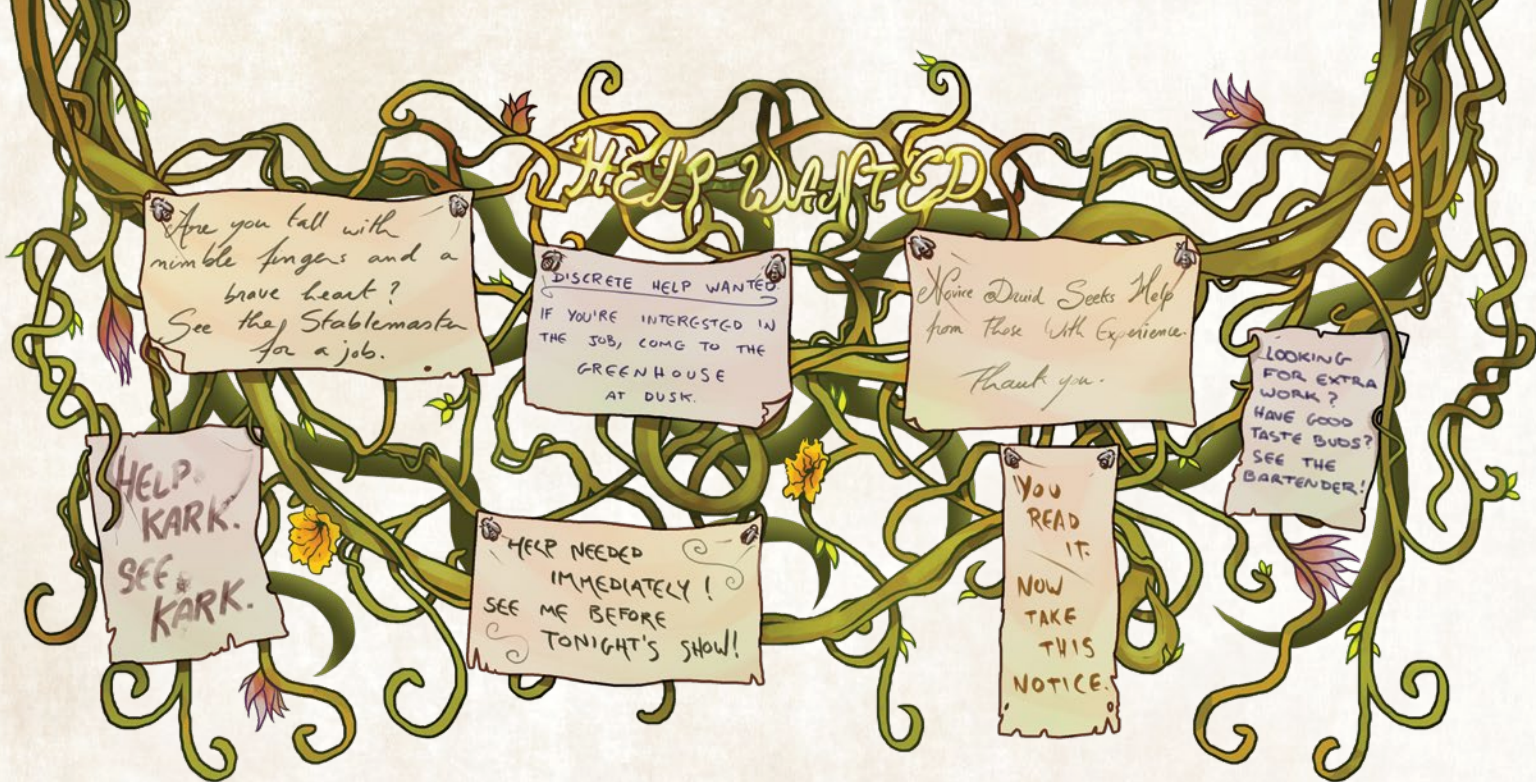 HELP WANTED
Are you tall with
nimble fingers and a
brave heart?
See the Stablemaster
for a job.
DISCRETE HELP WANTED.
IF YOU'RE INTERESTED IN
THE JOB, COME TO THE
GREENHOUSE
AT DUSK.
Novice Druid Seeks Help
from Those With Experience.
Thank you.
LOOKING
FOR EXTRA
WORK?
HAVE GOOD
TASTE BUDS?
SEE THE
BARTENDER!
HELP.
KARK.
SEE
KARK.
HELP NEEDED
IMMEDIATELY!
SEE ME BEFORE
TONIGHT'S SHOW!
YOU
READ
IT.
NOW
TAKE
THIS
NOTICE.